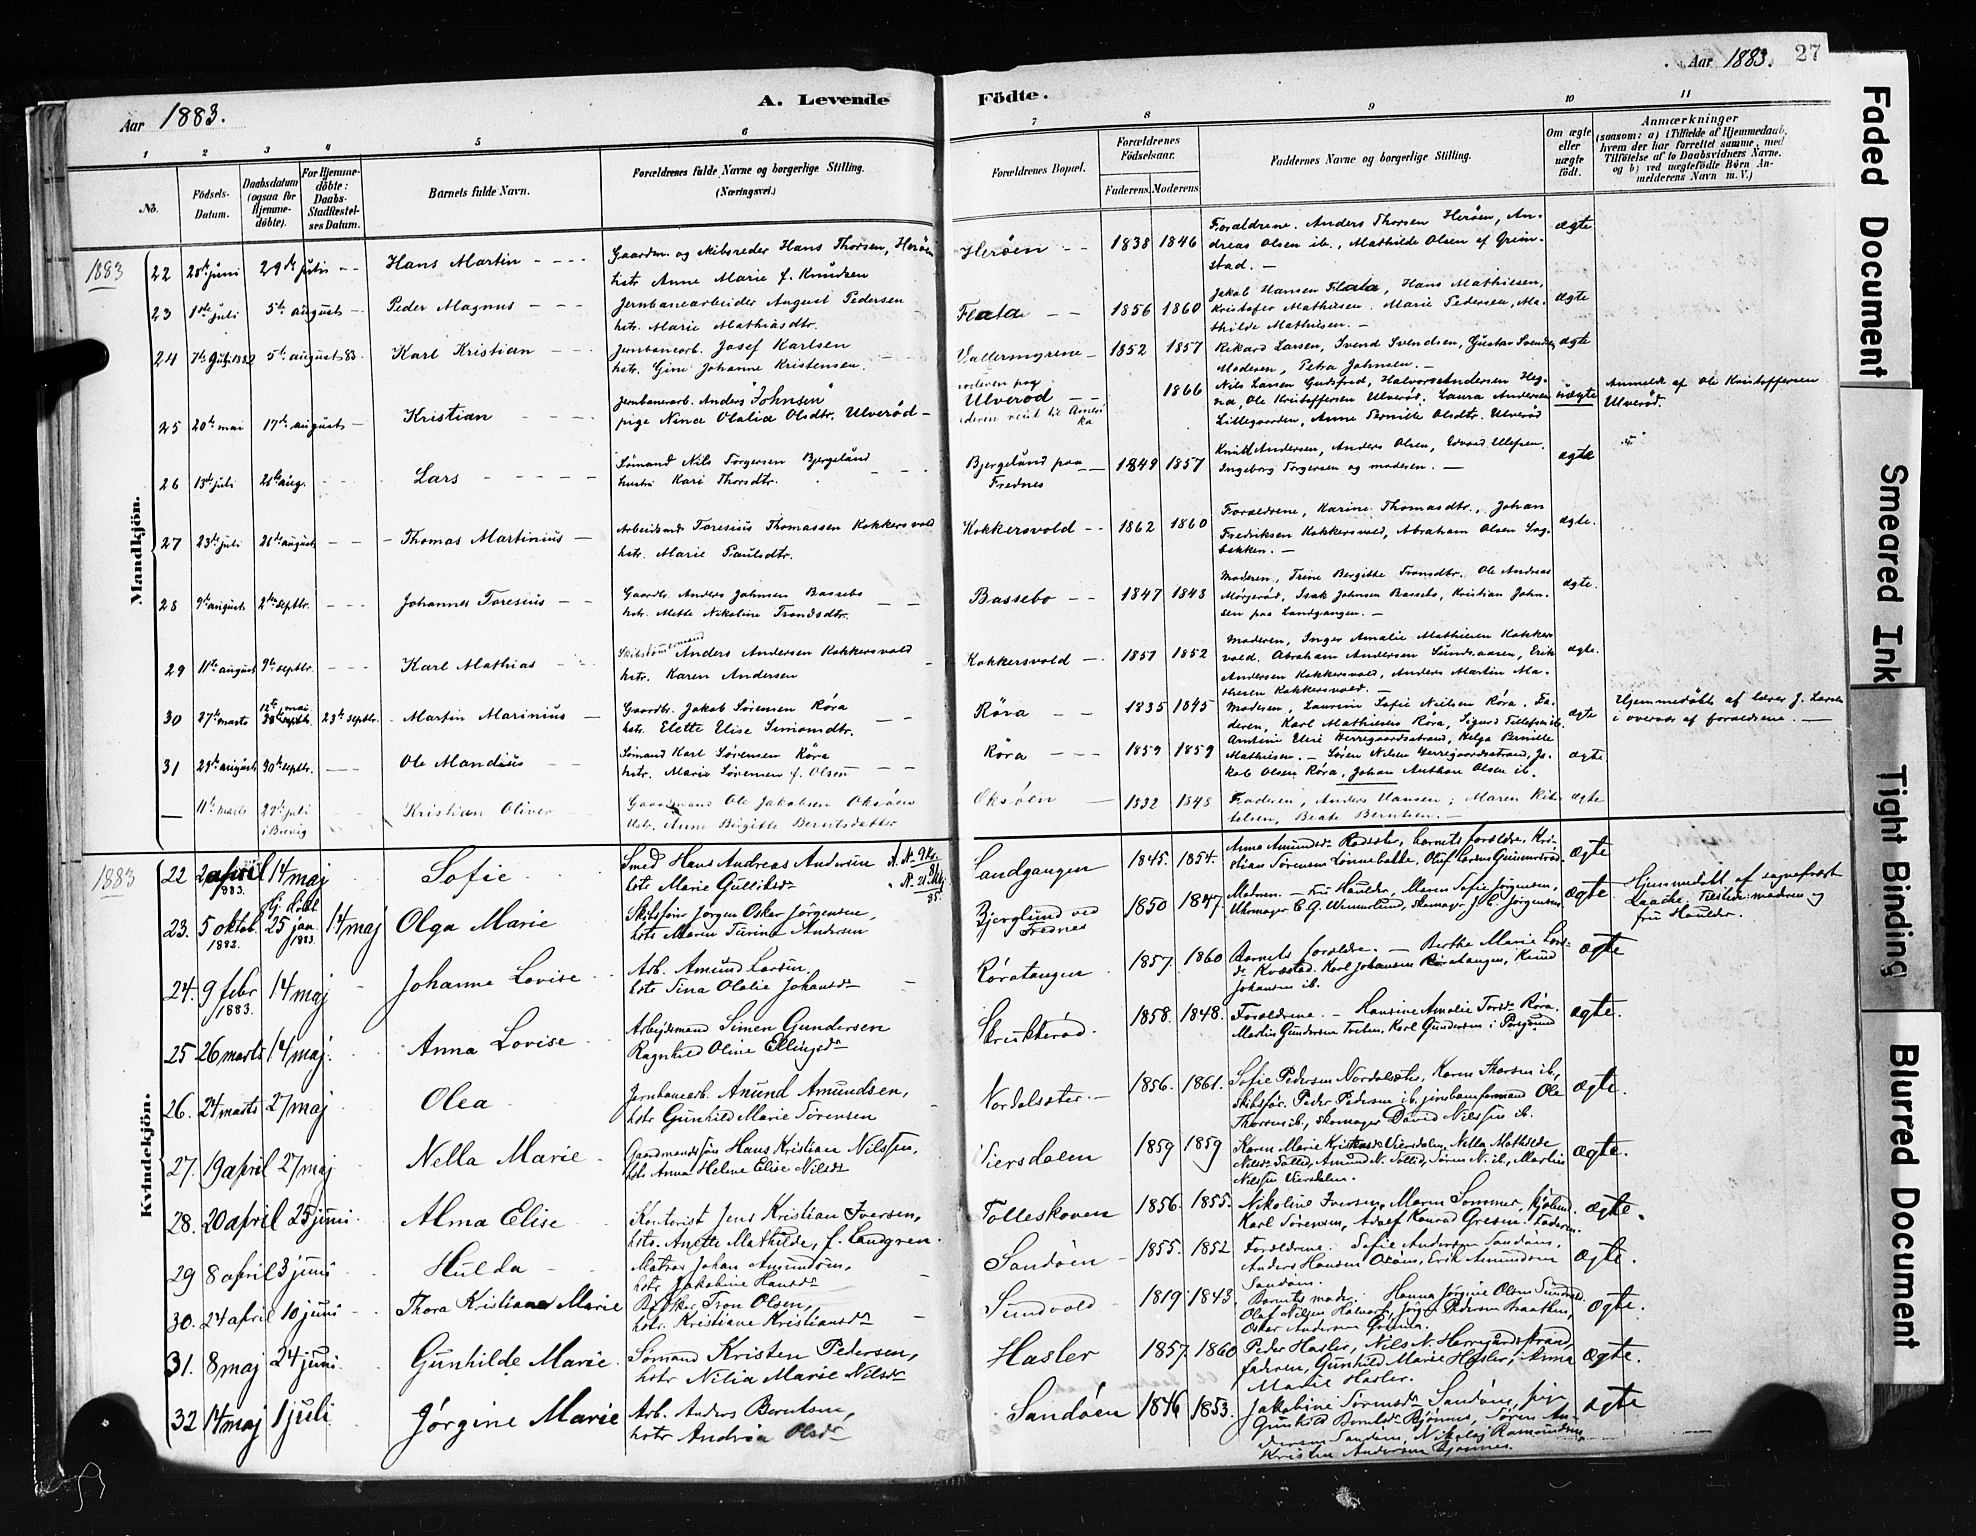 Aar 1883.
A. Levende
Födte.
Aar 1883.
27
1
2
3
4
5
6
7
8
9
10
11
No.
Födsels-
Datum.
Daabsdatum
(ogsaa for
Hjemme-
döbte).
For Hjemme-
döbte:
Daabs-
Stadfæstel-
ses Datum.
Barnets fulde Navn.
Forældrenes fulde Navne og borgerlige Stilling.
(Næringsvei.)
Forældrenes Bopæl.
Forældrenes
Födselsaar.
Faderens. Moderens.
Faddernes Navne og borgerlige Stilling.
Om ægte
eller
uægte
födt.
Anmærkninger
(saasom: a) i Tilfælde af Hjemmedaab,
hvem der har forrettet samme, med
Tilföielse af to Daabsvidners Navne,
og b) ved uægtefödte Börn An-
melderens Navn m. V.)
Mandkjön.
1883
22 juni 29de julii Hans Martin
Gaardm. og skibsreder Hans Thorsen, Herøen
hstr. Anne Marie f. Knudsen
Herøen 1838 1846
Forældrene. Anders Thorsen Herøen, An-
dreas Olsen ib., Mathilde Olsen af Grim-
stad. ægte
23 1ste juli 5te august Peder Magnus
Jernbanearbeider August Pedersen
hstr. Marie Mathiasdtr.
Flata 1856 1860
Jakob Hansen Flata, Hans Mathiesen,
Kristofer Mathiesen. Marie Pedersen, Ma-
thilde Mathiesen. ægte
24 5te august 83 Karl Kristian
Jernbanearb. Josef Karlsen
hstr. Gine Johanne Kristensen.
Vallermyrene 1852 1857
Rikard Larsen, Svend Svendsen, Gustav Svendsen
Moderen, Petra Johnsen. ægte
25 20de mai 17de august Kristian
Jernbanearb. Anders "Johnsen"
pige Nina Olalia Olsdtr. Ulverød
Ulverød 1866
Nils Larsen Gudsfred, Halvor Andersen Heg-
na, Ole Kristoffersen Ulverød. Laura Andersen
Lillegaarden, Anne Pernille Olsdtr. Ulverød
uægte
Anmeldt af Ole Kristoffersen
Ulverød.
26 13de juli 26de aug. Lars
Sømand Nils Torgersen Bjergelund
hustru Kari Thorsdtr.
Bjergelund paa
Frednes
1849 1857
Knut Andersen, Anders Olsen, Edvard Ellefsen.
Ingeborg Torgersen og moderen. ægte
27 23de juli 26de august Thomas Martinius
Arbeidsmd Toresius Thomassen Kokkersvold
hstr. Marie Paulsdtr.
Kokkersvold 1862 1860
Forældrene, Karine Thomasdtr., Johan
Fredriksen Kokkersvold, Abraham Olsen Log-
bakken. ægte.
28 9de august 2den septbr. Johannes Toresius
Gaardbr. Anders Johnsen Bassebo
hstr. Mette Nikoline Trondsdtr.
Bassebo 1847 1843
Moderen, Trine Bergitte Tronsdtr. Ole Andreas
Mörjeröd, Isak Johnsen Bassebo, Kristian John-
sen paa Landgangen. ægte.
29 11te august 9de septbr. Karl Mathias
Anders Andersen Kokkersvold
hstr. Karen Andersen
Kokkersvold 1851 1852
Moderen, Inger Amalie Mathiesen Kokkers
vold. Abraham Andersen Sundsaasen, Erik
Andersen Kokkersvold, Anders Martin Ma-
thesen Kokkersvold. ægte.
30 27de marts 12te mai 23de septbr. Martin Marinius
Gaardbr. Jakob Sørensen Røra
hstr. Elette Elise Simonsdtr.
Røra 1835 1845
Moderen, Laurine Sofie Nielsen Røra. Fa-
deren, Karl Mathiesen Røra, Sigurd Tellefsen ib.
ægte
Hjemmedøbt af lærer J. Larsen
i overvær af forældrene.
31 29de august 30te septbr. Ole Mandius
Sømand Karl Sørensen Røra
hstr. Marie Sørensen f. Olsen
Røra 1859 1859
Antine Elise Herregaardsstrand, Helga Pernille
Mathiesen. Søren Nilsen Herregaardsstrand, Ja-
kob Olsen Røra, Johan Anthon Olsen ib. ægte
11te marts 29de juli
i Brevig
Kristian Oliver
Gaardmand Ole Jakobsen Oksøen
Hstr. Anne Birgitte Berntsdatter
Oksøen 1832 1848
Faderen, Anders Hansen; Maren Kit-
telsen, Beate Berntsen. ægte
Kvindekjön.
1883
22 2 april 14 maj Sofie
Smed Hans Andreas Andersen
hstr. Marie Gulliksdr
Landgangen 1845. 1854.
Anna Amundsdr. barnets forældre, Kri-
stian Sørensen Lønnebakke, Oluf Larsen ægte
23. 5 oktob. 1882. Hj. døbt 25 jan. 1883 14 maj Olga Marie
Skibsfører Jørgen Oskar Jørgensen,
hstr. Maren Turine Andersen
Bjerglund ved
Frednes
1850 1847
Modren. Fru Haulder, Maren Sofie Jørgensen,
Uhrmager C. G. Wennerlund, Skomager J. C. Jørgensen ægte
Hjemmedøbt af sognepræst
Laache. Tilstede: modren og
fru Haulder.
24. 9 febr 1883. 14 maj Johanne Lovise
Arb. Amund Larsen.
hstr. Tina Olalie Johansdr
Røratangen 1857. 1860
Barnets forældre. Berthe Marie Lars-
dr. Kvæstad. Karl Johansen Røratangen, Knud
Johansen ib. ægte
25 26 marts 14 maj. Anna Lovise
Arbejdsmand Simen Gundersen
Ragnhild Oline Ellingsdr
Skrukkerød. 1858. 1848.
Forældrene. Hansine Amalie Torsdr Røra.
Martin Gundersen Treten, Karl Gundersen i Porsgrund ægte.
26. 24 marts 27 maj Olea
Jernbanearb. Anund Amundsen,
hstr Gunhild Marie Sørensen
Nordalsæter. 1856. 1861.
Sofie Pedersen Nordalsæter, Karen Thorsen ib.,
Skibsfør. Peder Pedersen ib. jernbaneformand Ole
Thorsen ib., Skomager David Nilssen ib. ægte.
27. 19 april 27 maj Nella Marie
Gaardmandssøn Hans Kristian Nilssen,
hstr. Anna Helene Elise Nilsdr
Viersdalen 1859 1859
Karen Marie Kristensdr Viersdalen, Nella Mathilde
Nilsdr Tollid, Amund N. Tollid, Søren N. ib., Martin
Nilssen Viersdalen. ægte.
28. 20 april 25 juni Alma Elise
Kontorist Jens Kristian Iversen,
hstr. Anette Mathilde, f. Landgren.
Tolleskoven 1856. 1855.
Nikoline Iversen, Maren Sommer,
Karl Sørensen, Adolf Konrad Gresen. Faderen. ægte.
29 8 april 3 juni Hulda
Matros Johan Amundsen,
hstr Jakobine Hansdr
Sandøen 1855. 1852
Forældrene. Sofie Andersen Sandøen,
Anders Hansen Oxøen, Erik Amundsen
Sandøen. ægte.
30. 24 april 10 juni Thora Kristiane Marie
Tron Olsen,
hstr. Kristiane Kristiansdr
Sundvold 1819 1843.
Barnets moder. Hanna Jørgine Olsen Sundvold.
Olaf Nilsen Jørgen Pedersen Braathen,
Oskar Andersen ægte.
31. 8 maj 24 juni Gunhilde Marie
Sømand Kristen Pedersen,
hstr Nilia Marie Nilsdr
Hasler 1857. 1860
Peder Hasler, Nils N. Herregårdsstrand,
faderen, Gunhild Marie Hasler, Anna
Marie Hasler. ægte.
32 14 maj 1 juli Jørgine Marie
Arb. Anders Berntsen,
hstr Andrea Olsdr
Sandøen 1846 1853.
Jakobine Sørensdr Sandøen, pige
Gunhild Berntsdr Bjønnes, Søren An-
dersen Sandøen, Nikolaj Rasmussen,
Kristen Andersen Bjønnes. ægte
Faded Document
Smeared Ink
Tight Binding
Blurred Document